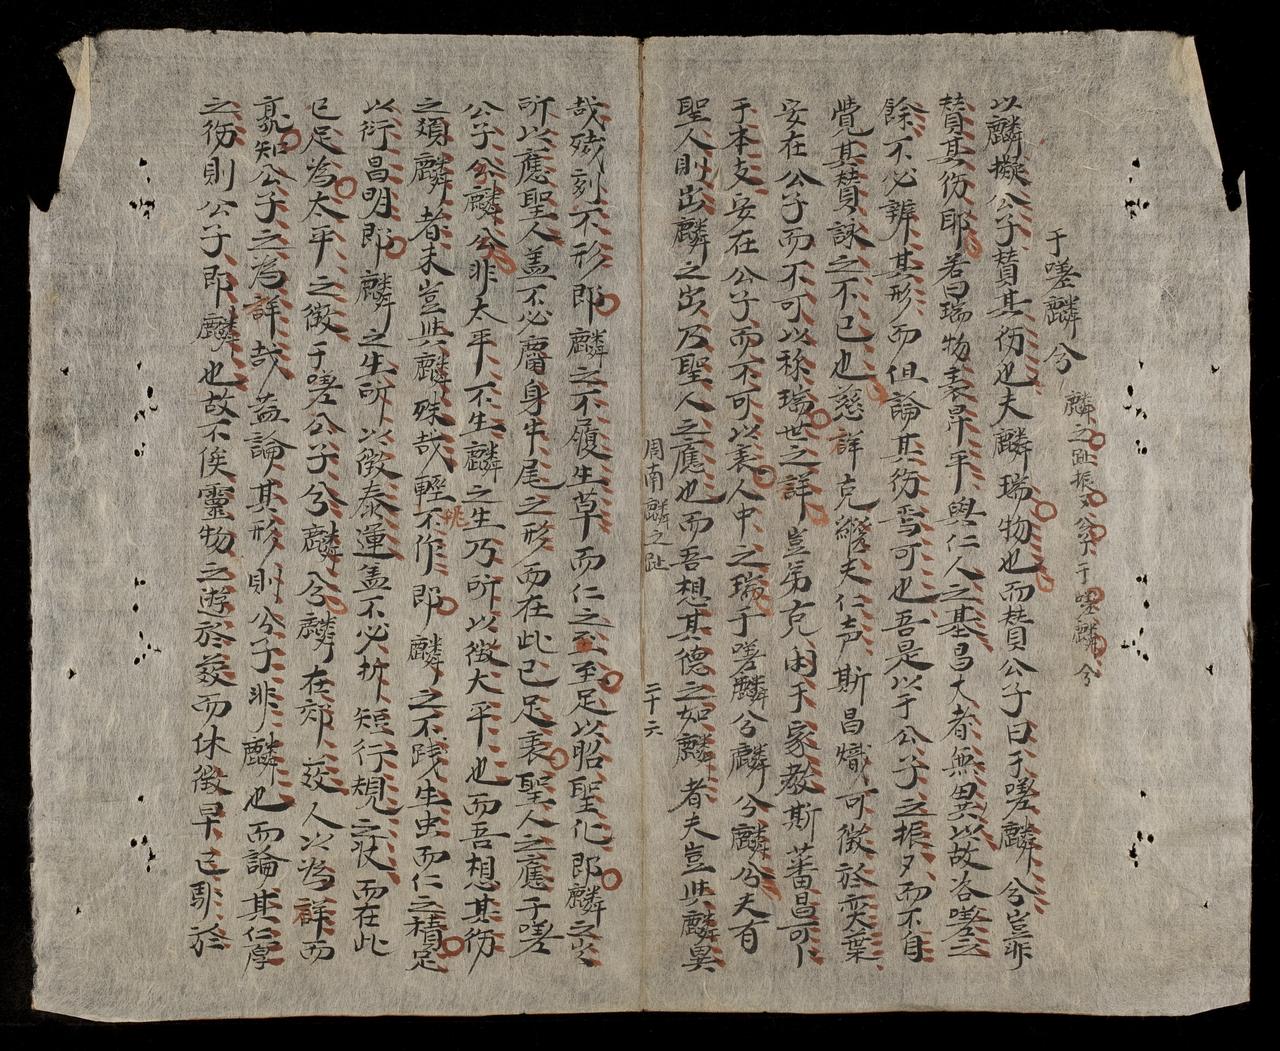 于嗟麟兮 麟之趾振々公子于嗟麟兮
以麟擬公子賛其徳也夫麟瑞物也而賛公子曰于嗟麟兮豈非
賛其徳耶若曰瑞物表昇平與仁人之基昌大者無異以故咨嗟之
餘不必辨其形而但論其徳焉可也吾是以于公子之振々而不自
覺其賛詠之不已也慈祥克繼夫仁声斯昌熾可徵於奕葉
安在公子而不可以称瑞世之祥豈弟克闲于家教斯蕃昌可卜
于本支安在公子而不可以表人中之瑞于嗟麟兮麟兮麟兮夫有
聖人則出麟之出乃聖人之應也而吾想其德之如麟者夫豈與麟異
周南麟之趾 二十六
哉殘刻不形即麟之不履生草而仁之至至足以昭聖化即麟之出
所以應聖人盖不必麕身牛尾之形而在此已足表聖人之應于嗟
公子兮麟兮非太平不生麟之生乃所以徵太平也而吾想其徳
之類麟者未豈與麟殊哉輕佻不作即麟之不践生虫而仁之積足
以衍昌明即麟之生所以徵泰運盖不必折短行規之狀而在此
已足為太平之徵于嗟公子兮麟兮麟在郊薮人以為祥而
孰知公子之為祥哉盖論其形則公子非麟也而論其仁厚
之徳則公子即麟也故不俟靈物之遊於薮而休徵早已聊於